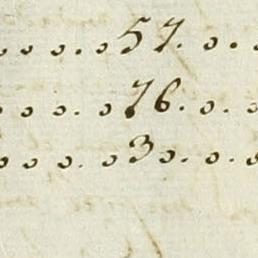 o . o . o . . o 57 . o . o
o . o . o . o 76 . o . o
o . o . o . o 30 . o . o